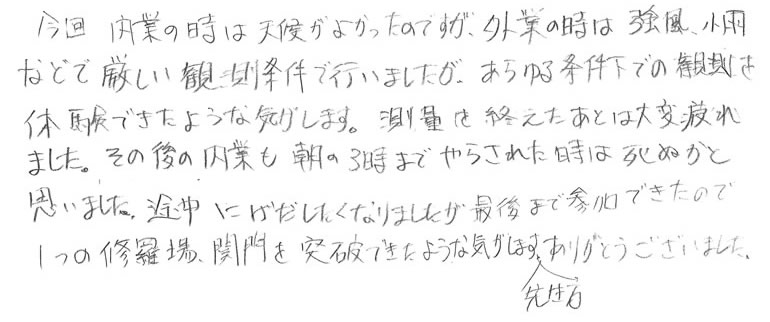 今回 内業の時は天候がよかったのですが、外業の時は強風、小雨
などで厳しい観測条件で行いましたが、あらゆる条件下での観測を
体験できたような気がします。測量を終えたあとは大変疲れ
ました。その後の内業も朝の3時までやらされた時は死ぬかと
思いました。途中にげだしたくなりましたが最後まで参加できたので
1つの修羅場、関門を突破できたような気がします。ありがとうございました。
先生方